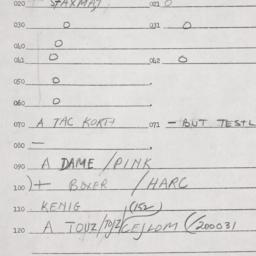 020 STAXMAT 021 O
030 O 031 O
040 O
041 O 042 O
050 O
060 O
070 A TAC 071 - BUT TESTL
080 —
090 A DAME / PINK
100 )+ BOXER / HARC
110 KENIG (152)
120 A TOUZ/TOJZ (/200031